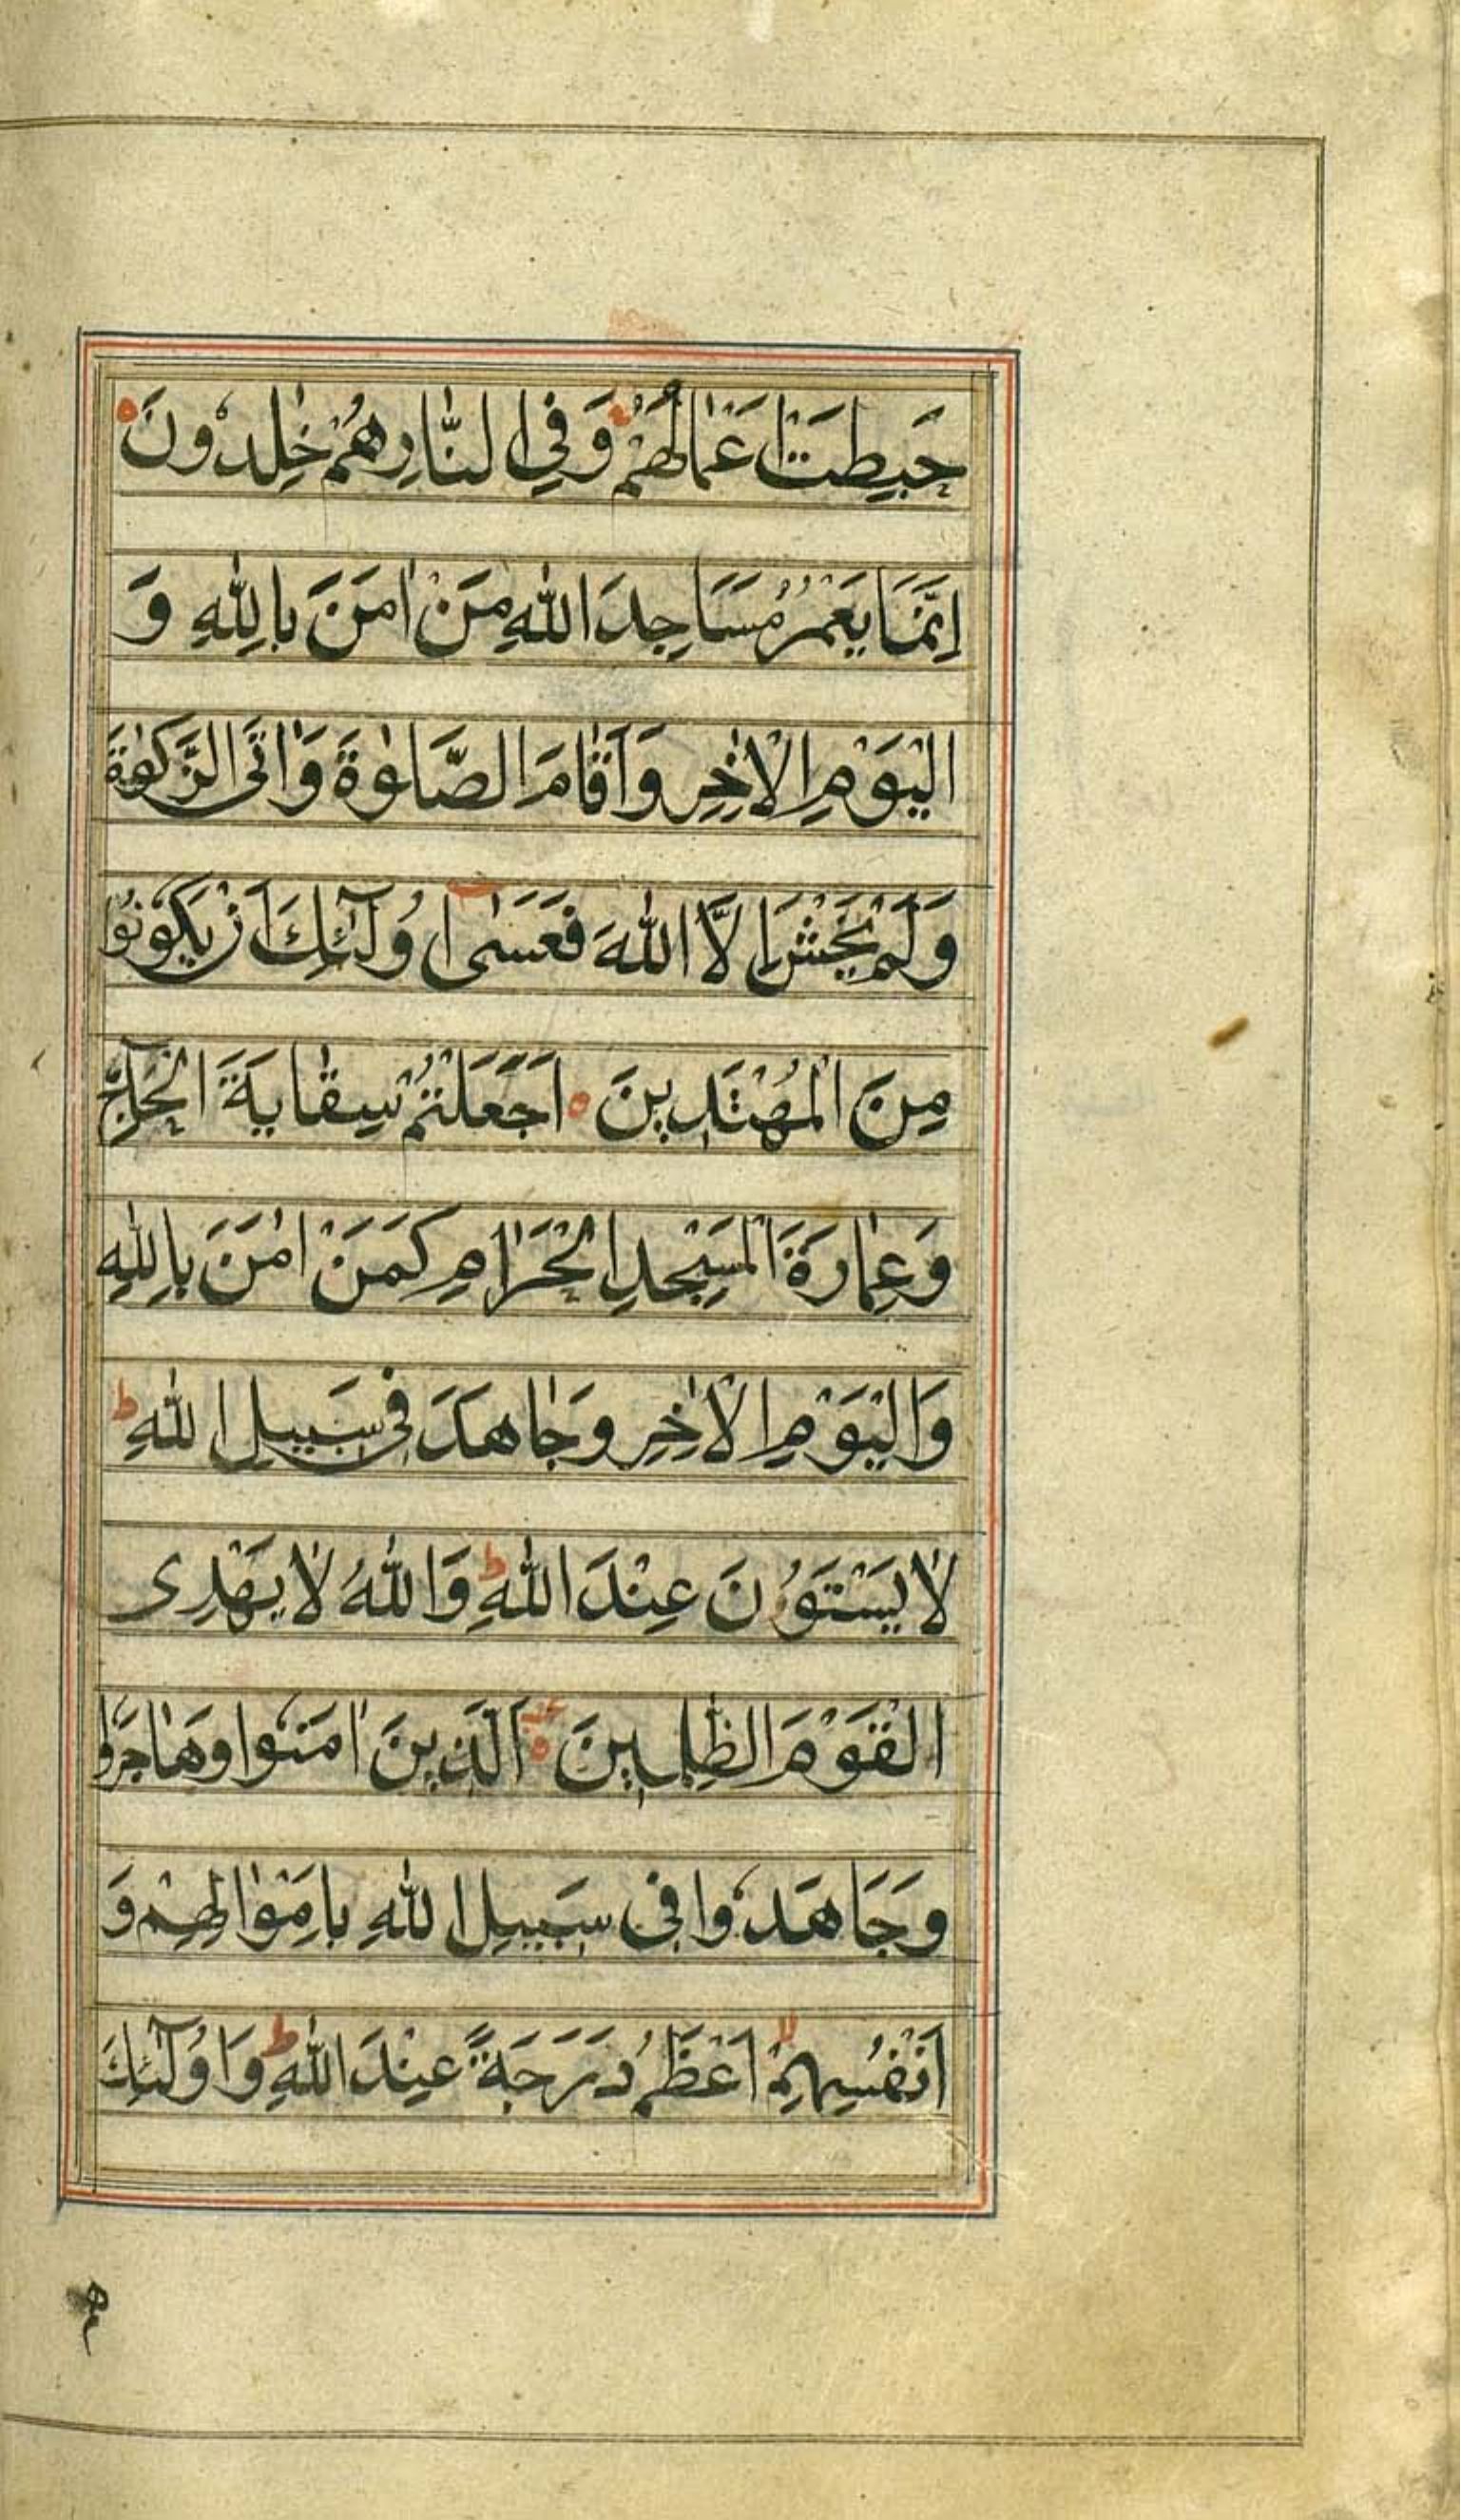 حَبِطَتْ اَعْمَالُهُمْ وَفِي النَّارِ هُمْ خٰلِدُونَ
اِنَّمَا يَعْمُرُ مَسَاجِدَ اللّٰهِ مَنْ اٰمَنَ بِاللّٰهِ وَ
الْيَوْمِ الْاٰخِرِ وَاَقَامَ الصَّلٰوةَ وَاٰتَى الزَّكٰوةَ
وَلَمْ يَخْشَ اِلَّا اللّٰهَ فَعَسٰى اُولٰٓئِكَ اَنْ يَكُوْنُوْا
مِنَ الْمُهْتَدِينَ اَجَعَلْتُمْ سِقَايَةَ الْحَآجِّ
وَعِمَارَةَ الْمَسْجِدِ الْحَرَامِ كَمَنْ اٰمَنَ بِاللّٰهِ
وَالْيَوْمِ الْاٰخِرِ وَجَاهَدَ فِي سَبِيلِ اللّٰهِ ط
لَا يَسْتَوُنَ عِنْدَ اللّٰهِ ط وَاللّٰهُ لَا يَهْدِى
الْقَوْمَ الظّٰلِمِينَ اَلَّذِينَ اٰمَنُوا وَهَاجَرُوا
وَجَاهَدُوا فِى سَبِيلِ اللّٰهِ بِاَمْوَالِهِمْ وَ
اَنْفُسِهِمْ اَعْظَمُ دَرَجَةً عِنْدَ اللّٰهِ ط وَاُولٰٓئِكَ
هم